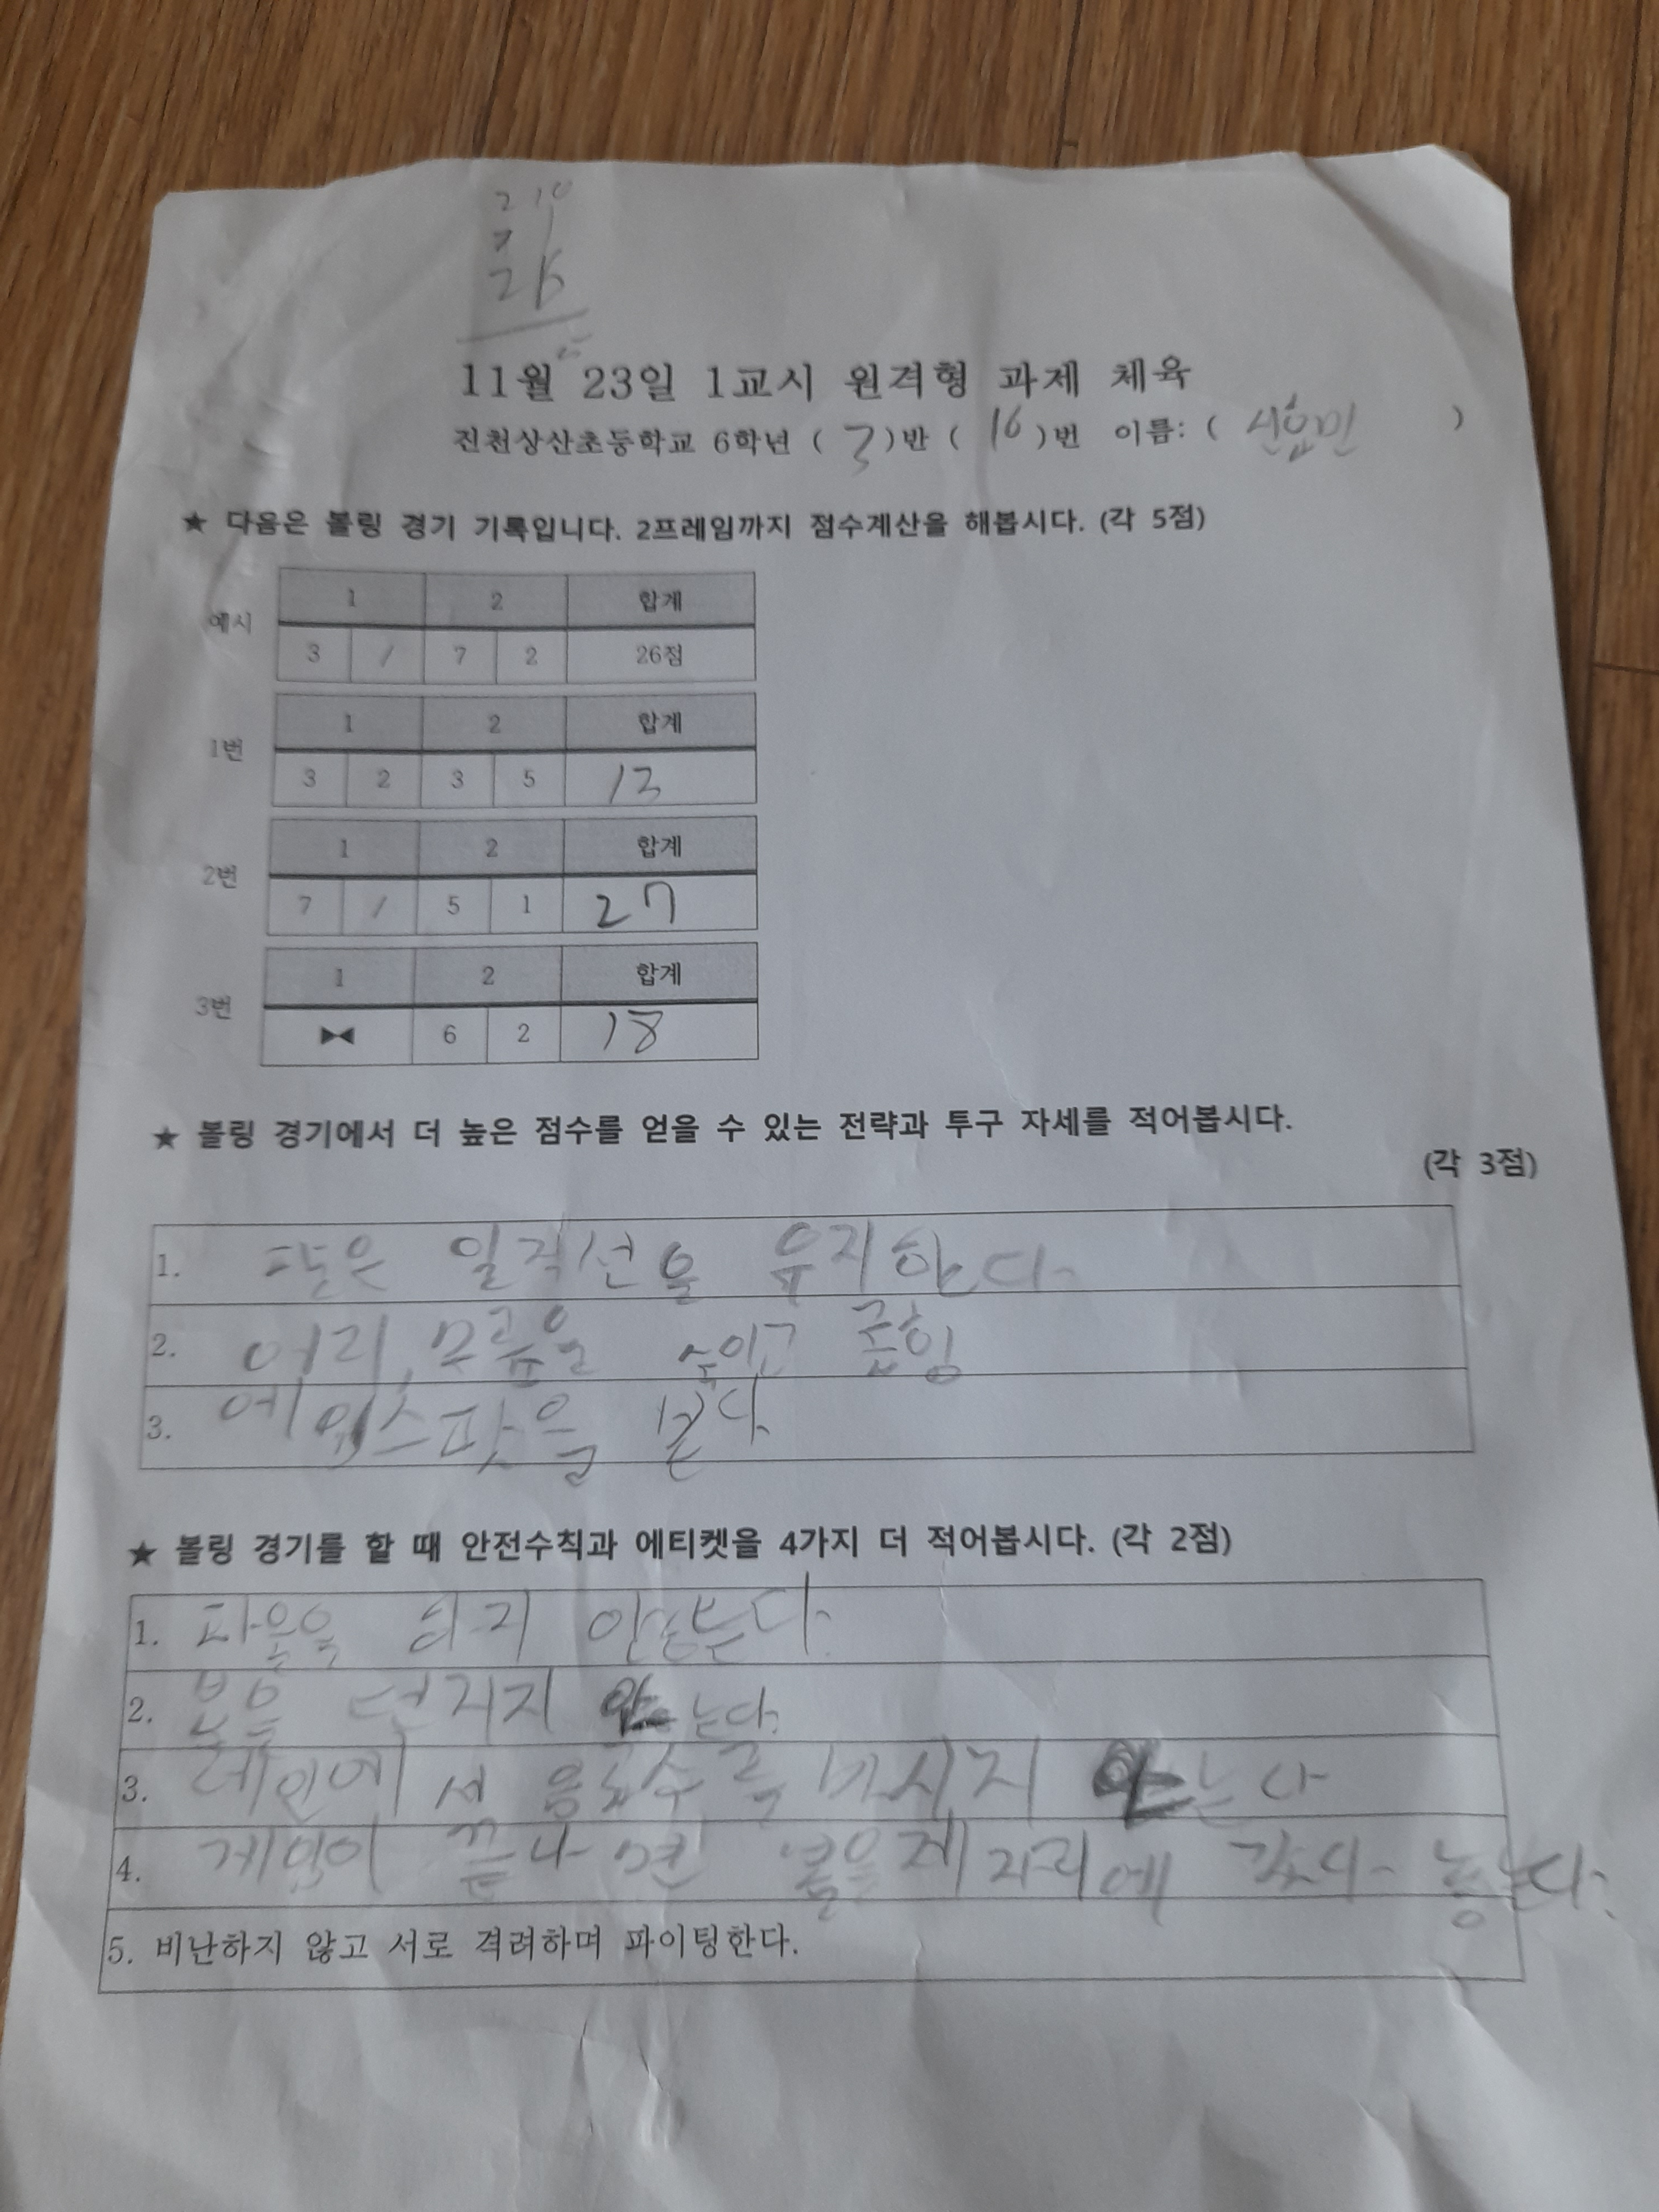 210
11월 23일 1교시 원격형 과제 체육
진천상산초등학교 6학년 ( 3 )반 ( 16 )번 이름: ( )
★ 다음은 볼링 경기 기록입니다. 2프레임까지 점수계산을 해봅시다. (각 5점)
예시
1 2 합계
3 / 7 2 26점
1번
1 2 합계
3 2 3 5 13
2번
1 2 합계
7 / 5 1 27
3번
1 2 합계
▶◀ 6 2 18
★ 볼링 경기에서 더 높은 점수를 얻을 수 있는 전략과 투구 자세를 적어봅시다.
(각 3점)
1. 팔은 일직선을 유지한다.
2. 허리, 무릎을 숙이고 굽힘
3. 에임스팟을 본다
★ 볼링 경기를 할 때 안전수칙과 에티켓을 4가지 더 적어봅시다. (각 2점)
1. 파울을 하지 않는다.
2. 볼을 던지지 않는다.
3. 레인에서 음료수를 마시지 않는다
4. 게임이 끝나면 볼을 제자리에 갖다 놓는다.
5. 비난하지 않고 서로 격려하며 파이팅한다.